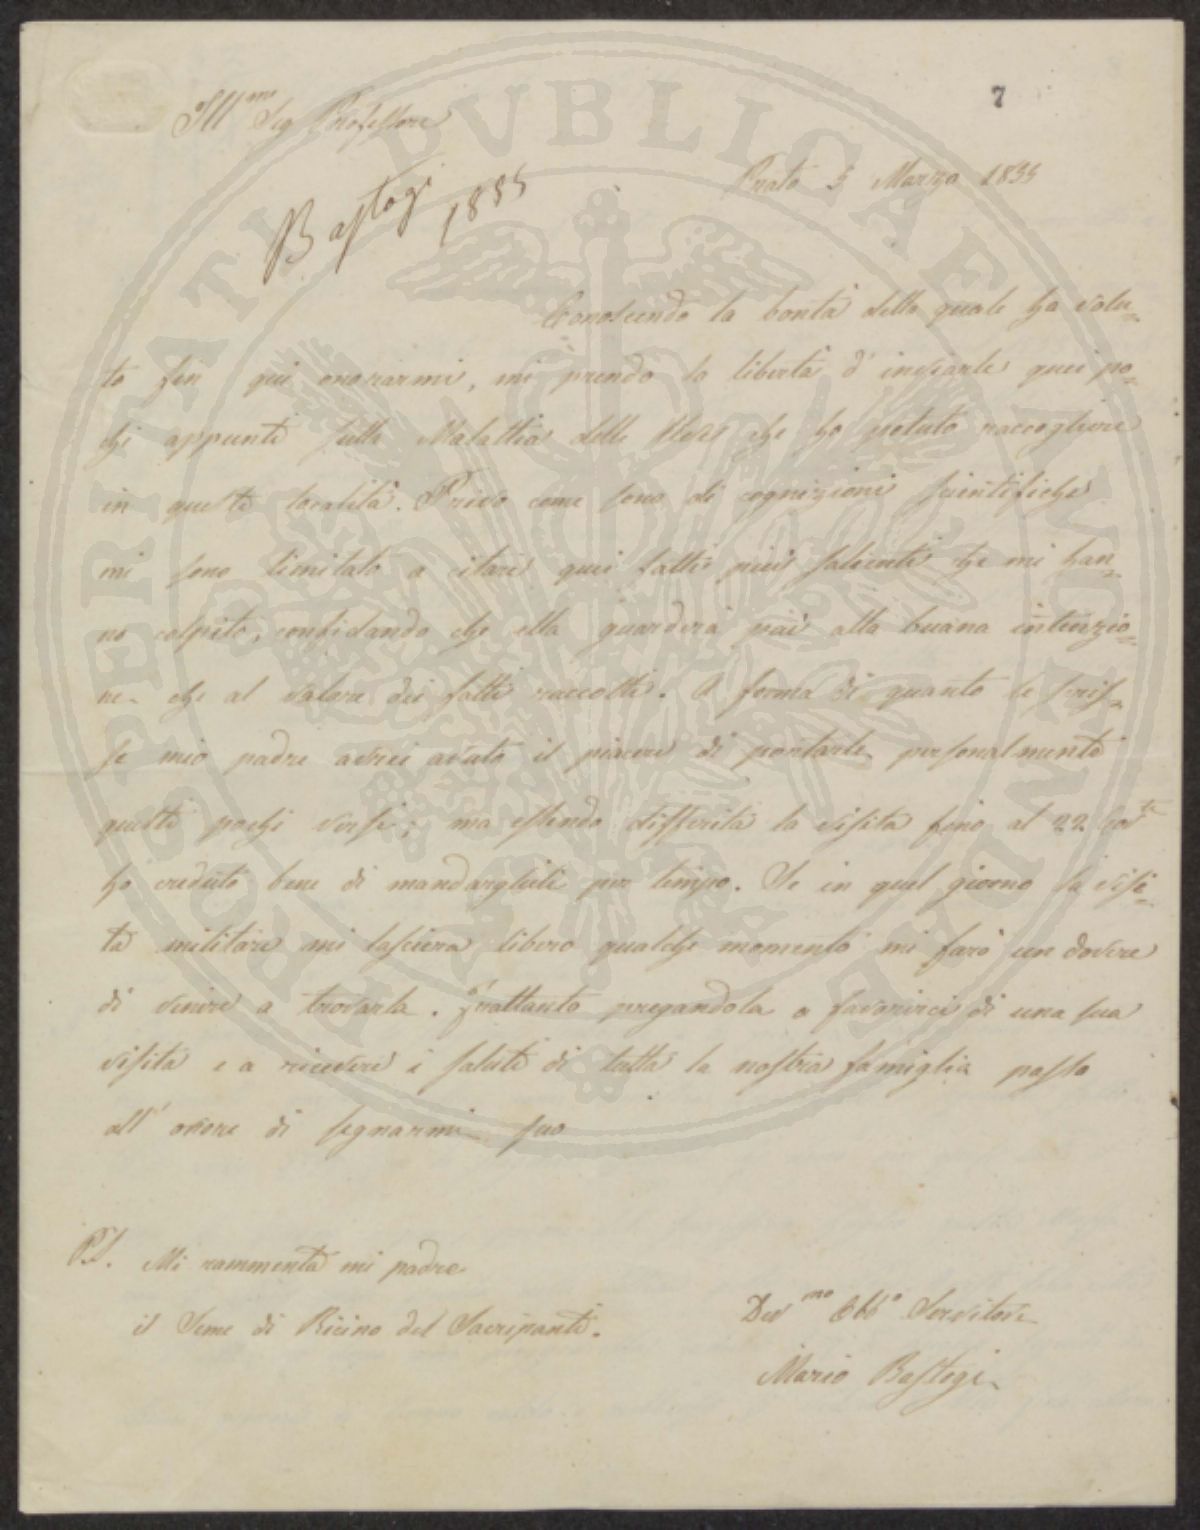 7
Ill.mo Sig Professore
Prato 5 Marzo 1855
Bastogi 1855
Conoscendo la bontà della quale ha volu=
to fin qui onorarmi, mi prendo la libertà d'inviarle quei po=
chi appunti sulla Malattia delle che ho potuto raccogliere
in queste località. Privo come sono di cognizioni scientifiche
mi sono limitato a citare quei fatti più salienti che mi han=
no colpito, confidando che ella guarderà più alla buona intenzio=
ne che al valore dei fatti raccolti. A forma di quanto le scris=
se mio padre avrei avuto il piacere di portarle personalmente
questi pochi versi; ma essendo differita la visita fino al 22
ho creduto bene di mandarglieli per tempo. Se in quel giorno la visi=
ta militare mi lascierà libero qualche momento mi farò un dovere
di venire a trovarla. Frattanto pregandola a favorirci di una sua
visita e a ricevere i saluti di tutta la nostra famiglia passo
all'onore di segnarmi suo
PS. Mi rammenta mi padre
il Seme di Ricino del Sacripanti.
Dev.mo Obb.o Servitore
Mario Bastogi
PROSPERITATI PVBLICAE AVGENDAE